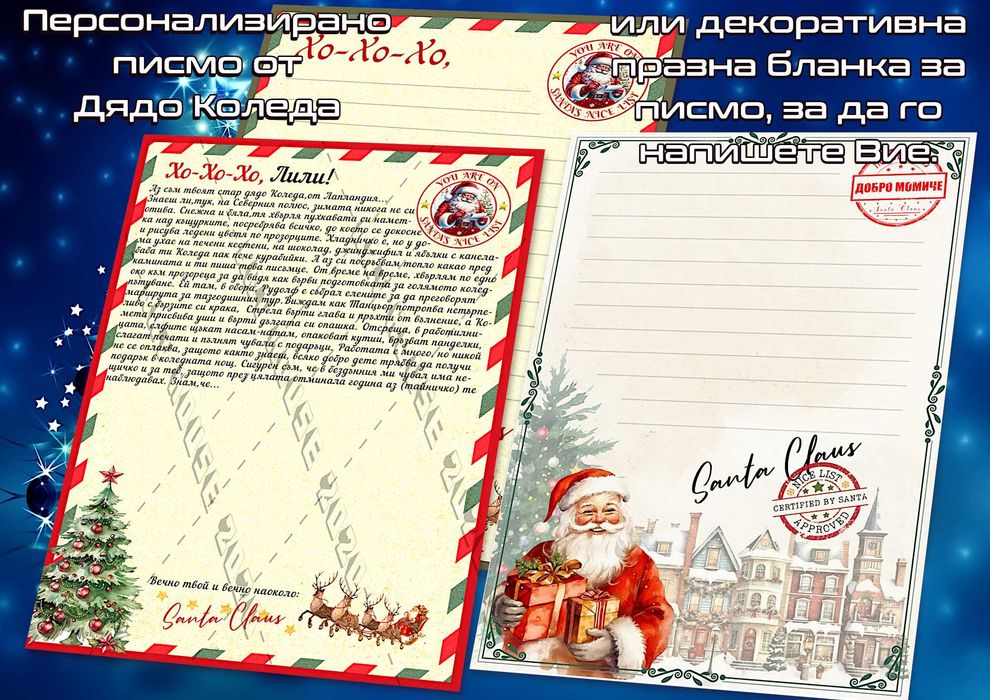 Персонализирано
писмо от
Дядо Коледа
или декоративна
празна бланка за
писмо, за да го
напишете Вие.
Хо-Хо-Хо,
YOU ARE ON
SANTA'S NICE LIST
Хо-Хо-Хо, Лили!
YOU ARE ON
SANTA'S NICE LIST
Аз съм твоят стар дядо Коледа,от Лапландия...!
Знаеш ли,тук, на Северния полюс, зимата никога не си
отива. Снежна и бяла,тя хвърля пухкавата си намет-
ка над къщурките, посребрява всичко, до което се докосне
и рисува ледени цветя по прозорците. Хладничко е, но у до-
ма ухае на печени кестени, на шоколад, джинджифил и ябълки с канела-
баба ти Коледа пак пече курабийки. А аз си посръбвам топло какао пред
камината и ти пиша това писъмце. От време на време, хвърлям по едно
око към прозореца за да видя как върви подготовката за голямото колед-
пътуване. Ей там, в обора, Рудолф е събрал елените за да преговорят
маршрута за тазгодишния тур. Виждам как Танцьор потропва нетърпе-
ливо с бързите си крака, Стрела върти глава и пръхти от вълнение, а Ко-
мета присвива уши и върти дългата си опашка. Отсреща, в работилни-
цата, елфите щъкат насам-натам, опаковат кутии, връзват панделки,
слагат етикети и пълнят чувала с подаръци. Работата е много, но никой
не се оплаква, защото както знаеш, всяко добро дете трябва да получи
подарък в коледната нощ. Сигурен съм, че в бездънния ми чувал има не-
щичко и за теб, защото през цялата отминала година аз (тайничко) те
наблюдавах. Знам,че...
Вечно твой и вечно наоколо:
Santa Claus
ДОБРО МОМИЧЕ
Santa Claus
Santa Claus
NICE LIST
CERTIFIED BY SANTA
APPROVED